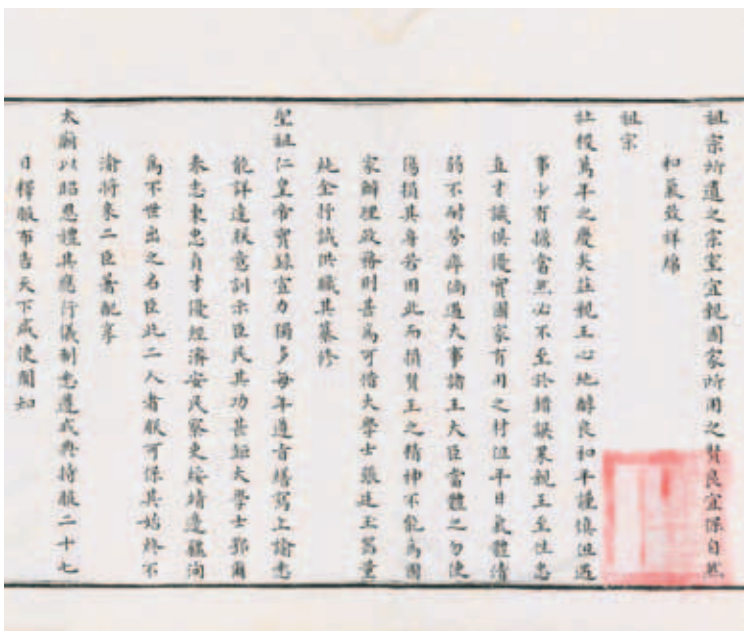 祖宗所遺之宗室宜親國家所用之賢良宜保自然
和氣致祥綿
祖宗
社稷萬年之慶矣莊親王心地醇良和平謹慎但遇
事少有擔當然必不至於錯誤果親王至性忠
直才識俱優實國家有用之材但平日氣體清
弱不耐勞瘁倘遇大事諸王大臣當體之勿使
傷損其身若因此而損賢王之精神不能為國
家辦理政務則甚為可惜大學士張廷玉器量
純全抒誠供職其纂修
聖祖仁皇帝實錄宣力獨多每年遵旨繕寫上諭悉
能詳達朕意訓示臣民其功甚鉅大學士鄂爾
泰志秉忠貞才優經濟安民察吏綏靖邊疆洵
為不世出之名臣此二人者朕可保其始終不
渝將來二臣著配享
太廟以昭恩禮其應行儀制悉遵成典持服二十七
日釋服布告天下咸使聞知